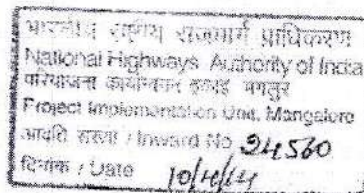 भारतीय राष्ट्रीय राजमार्ग प्राधिकरण
National Highways Authority of India
परियोजना कार्यान्वयन इकाई मंगलूर
Project Implementation Unit, Mangalore
आवति संख्या / Inward No 24560
दिनांक / Date 10/4/14